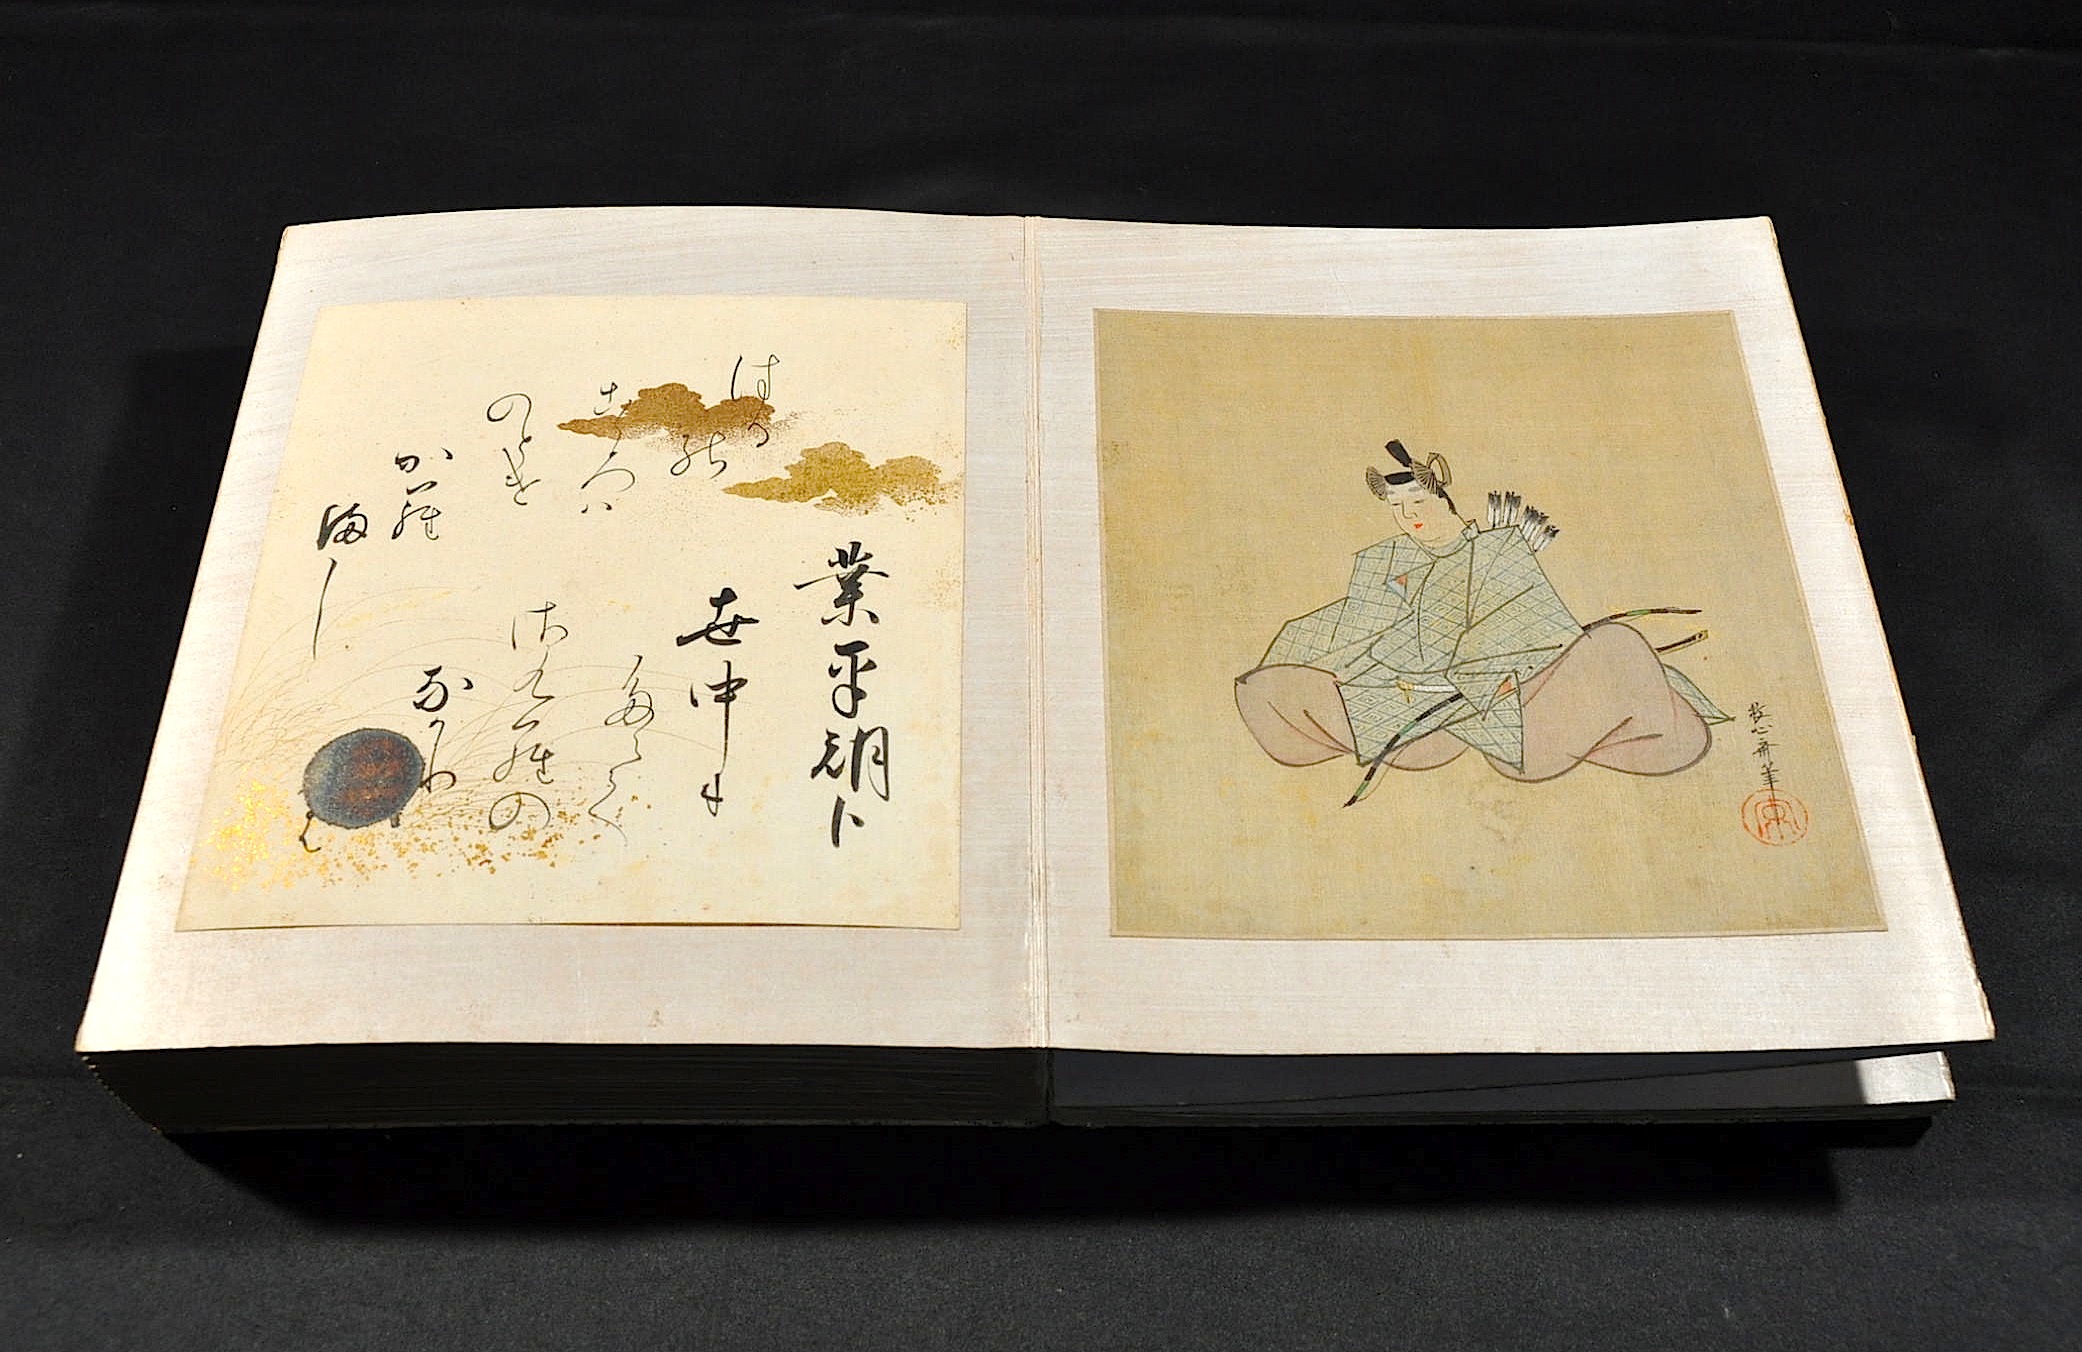 業平朝臣
世中に
たえて
さくらの
なかり
はるの
こゝろハ
のとけ
から
まし
牧心斎筆